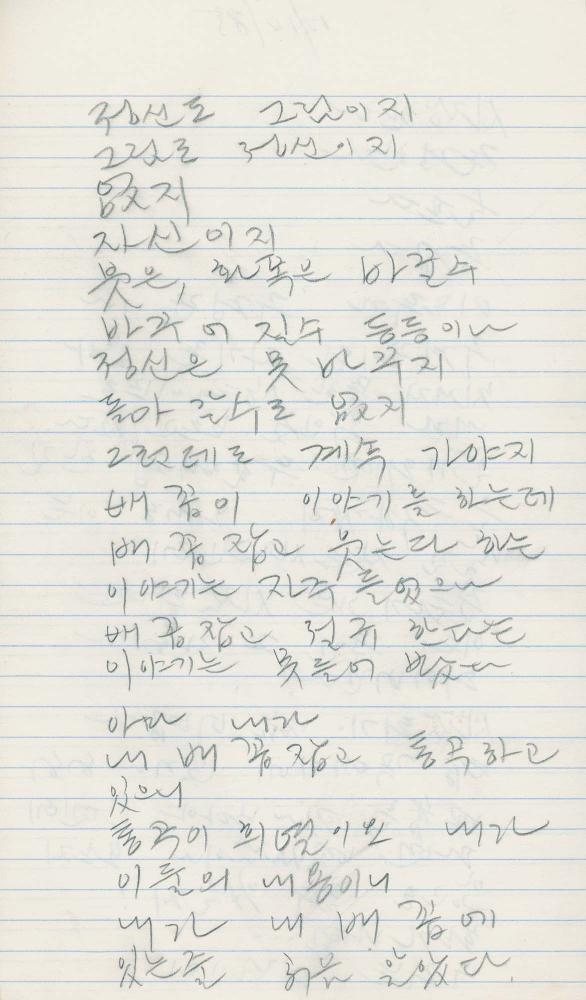 정신도 그림이지
그림도 정신이지
없지
자신이지
붓은, 화폭은 바꿀수
바꾸어 질수 등등이나
정신은 못 바꾸지
돌아 갈수도 없지
그런데도 계속 가야지
배꼽이 이야기를 하는데
배꼽잡고 웃는다 하는
이야기는 자주 들었으나
배꼽잡고 절규 한다는
이야기는 못들어 봤다
아마 내가
내 배꼽잡고 통곡하고
있으니
통곡이 희열이오 내가
이들의 내용이니
내가 내 배꼽에
있는줄 처음 알았다.